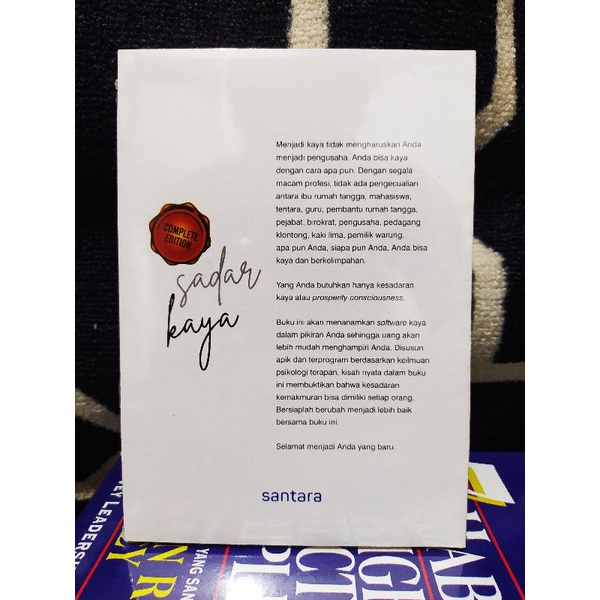 Menjadi kaya tidak mengharuskan Anda
menjadi pengusaha. Anda bisa kaya
dengan cara apa pun. Dengan segala
macam profesi, tidak ada pengecualian
antara ibu rumah tangga, mahasiswa,
tentara, guru, pembantu rumah tangga,
pejabat, birokrat, pengusaha, pedagang
klontong, kaki lima, pemilik warung,
apa pun Anda, siapa pun Anda, Anda bisa
kaya dan berkelimpahan.
Yang Anda butuhkan hanya kesadaran
kaya atau prosperity consciousness.
Buku ini akan menanamkan software kaya
dalam pikiran Anda sehingga uang akan
lebih mudah menghampiri Anda. Disusun
apik dan terprogram berdasarkan keilmuan
psikologi terapan, kisah nyata dalam buku
ini membuktikan bahwa kesadaran
kemakmuran bisa dimiliki setiap orang.
Bersiaplah berubah menjadi lebih baik
bersama buku ini.
Selamat menjadi Anda yang baru.
COMPLETE
EDITION
sadar
kaya
santara
YANG SAN
7 HAB